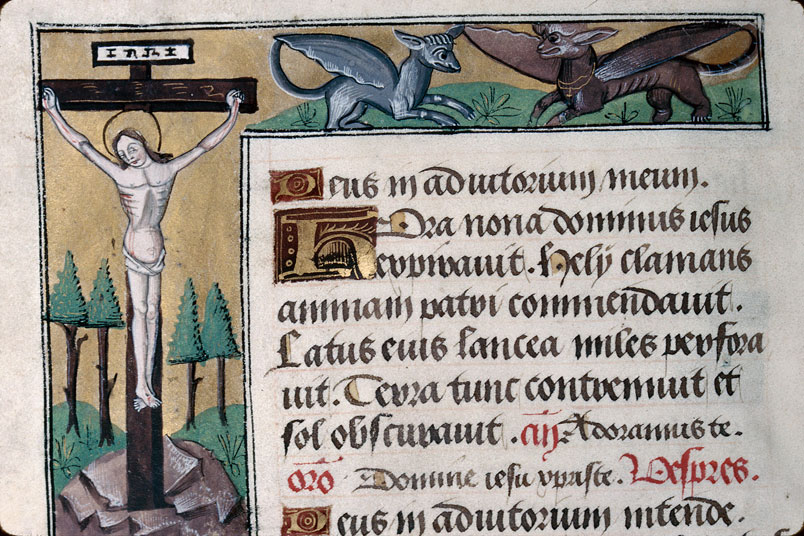 INRI
Deus in adiutorium meum.
Hora nona dominus iesus
expiravit. Hely clamans
animam patri commendauit.
Latus eius lancea miles perfora
uit. Terra tunc contremuit et
sol obscurauit. Adoramus te.
oro Domine iesu xpriste. Vespres.
Deus in adiutorium intende.